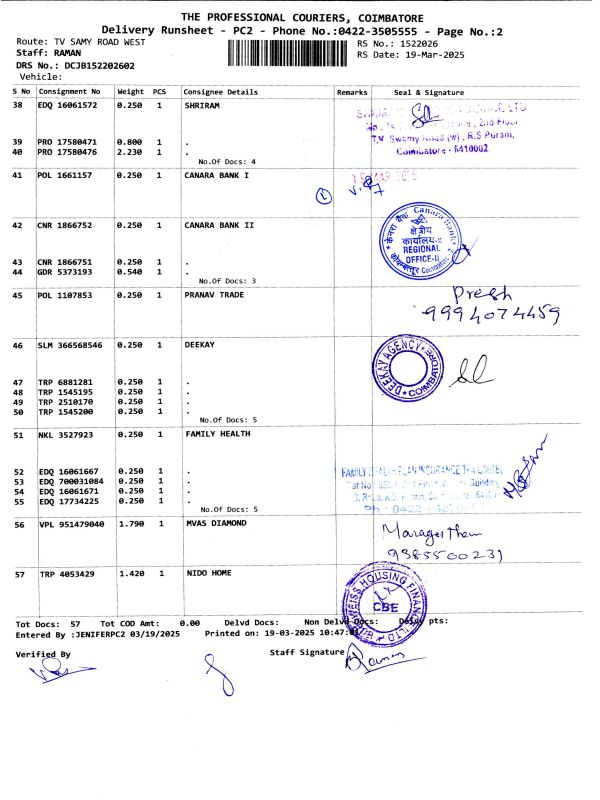 THE PROFESSIONAL COURIERS, COIMBATORE
Delivery Runsheet - PC2 - Phone No.:0422-3505555 - Page No.:2
Route: TV SAMY ROAD WEST
RS No.: 1522026
Staff: RAMAN
RS Date: 19-Mar-2025
DRS No.: DCJB152202602
Vehicle:
S No Consignment No Weight PCS Consignee Details Remarks Seal & Signature
38 EDQ 16061572 0.250 1 SHRIRAM
2nd Floor
T.V. Swamy Road (W), R.S Puram,
Coimbatore - 6410002
39 PRO 17580471 0.800 1 .
40 PRO 17580476 2.230 1 .
No.Of Docs: 4
41 POL 1661157 0.250 1 CANARA BANK I
42 CNR 1866752 0.250 1 CANARA BANK II
केनरा बैंक Canara Bank
क्षेत्रीय
कार्यालय-II
REGIONAL
OFFICE-II
Coimbatore
43 CNR 1866751 0.250 1 .
44 GDR 5373193 0.540 1 .
No.Of Docs: 3
45 POL 1107853 0.250 1 PRANAV TRADE
9994074459
46 SLM 366568546 0.250 1 DEEKAY
DEEKAY AGENCY
COIMBATORE
47 TRP 6881281 0.250 1 .
48 TRP 1545195 0.250 1 .
49 TRP 2510170 0.250 1 .
50 TRP 1545200 0.250 1 .
No.Of Docs: 5
51 NKL 3527923 0.250 1 FAMILY HEALTH
FAMILY HEALTH PLAN INSURANCE TPA LIMITED
52 EDQ 16061667 0.250 1 .
53 EDQ 700031084 0.250 1 .
54 EDQ 16061671 0.250 1 .
55 EDQ 17734225 0.250 1 .
No.Of Docs: 5
56 VPL 951479040 1.790 1 MVAS DIAMOND
9385500231
57 TRP 4053429 1.420 1 NIDO HOME
HOUSING FINANCE LTD
CBE
Tot Docs: 57 Tot COD Amt: 0.00 Delvd Docs: Non Delvd Docs: Delvd pts:
Entered By :JENIFERPC2 03/19/2025 Printed on: 19-03-2025 10:47:
Verified By
Staff Signature
Raman